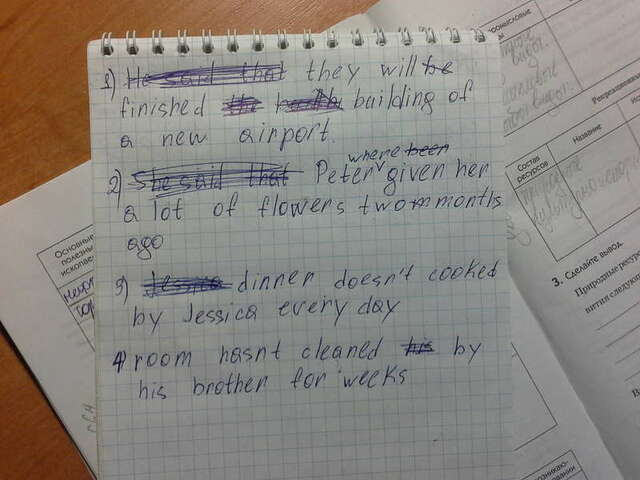 1) He said that they will be
finished building of
a new airport.
where been
2) She said that Peter given her
a lot of flowers two months
ago
3) Jessica dinner doesn't cooked
by Jessica every day
4) room hasnt cleaned his by
his brother for weeks
Основны
полезны
ископае
Состав
ресурсов
Название
3. Сделайте вывод.
Природные ресур
вития следующ